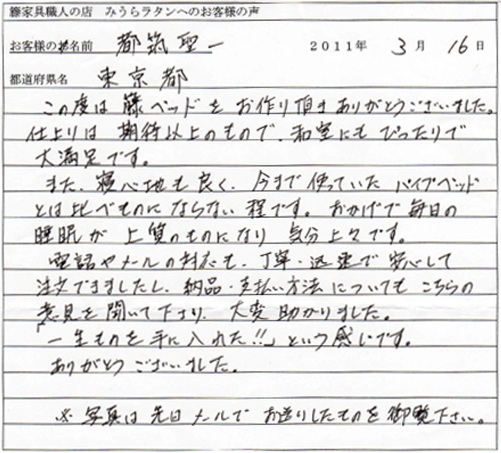 籐家具職人の店 みうらラタンへのお客様の声
お客様のお名前 都筑聖一 2011年 3月 16日
都道府県名 東京都
この度は籐ベッドをお作り頂きありがとうございました。
仕上りは期待以上のもので、和室にもぴったりで
大満足です。
また、寝心地も良く、今まで使っていたパイプベッド
とは比べものにならない程です。おかげで毎日の
睡眠が上質のものになり気分上々です。
電話やメールの対応も、丁寧・迅速で安心して
注文できましたし、納品・支払い方法についてもこちらの
意見を聞いて下さり、大変助かりました。
「一生ものを手に入れた!!」という感じです。
ありがとうございました。
※写真は先日メールでお送りしたものを御覧下さい。